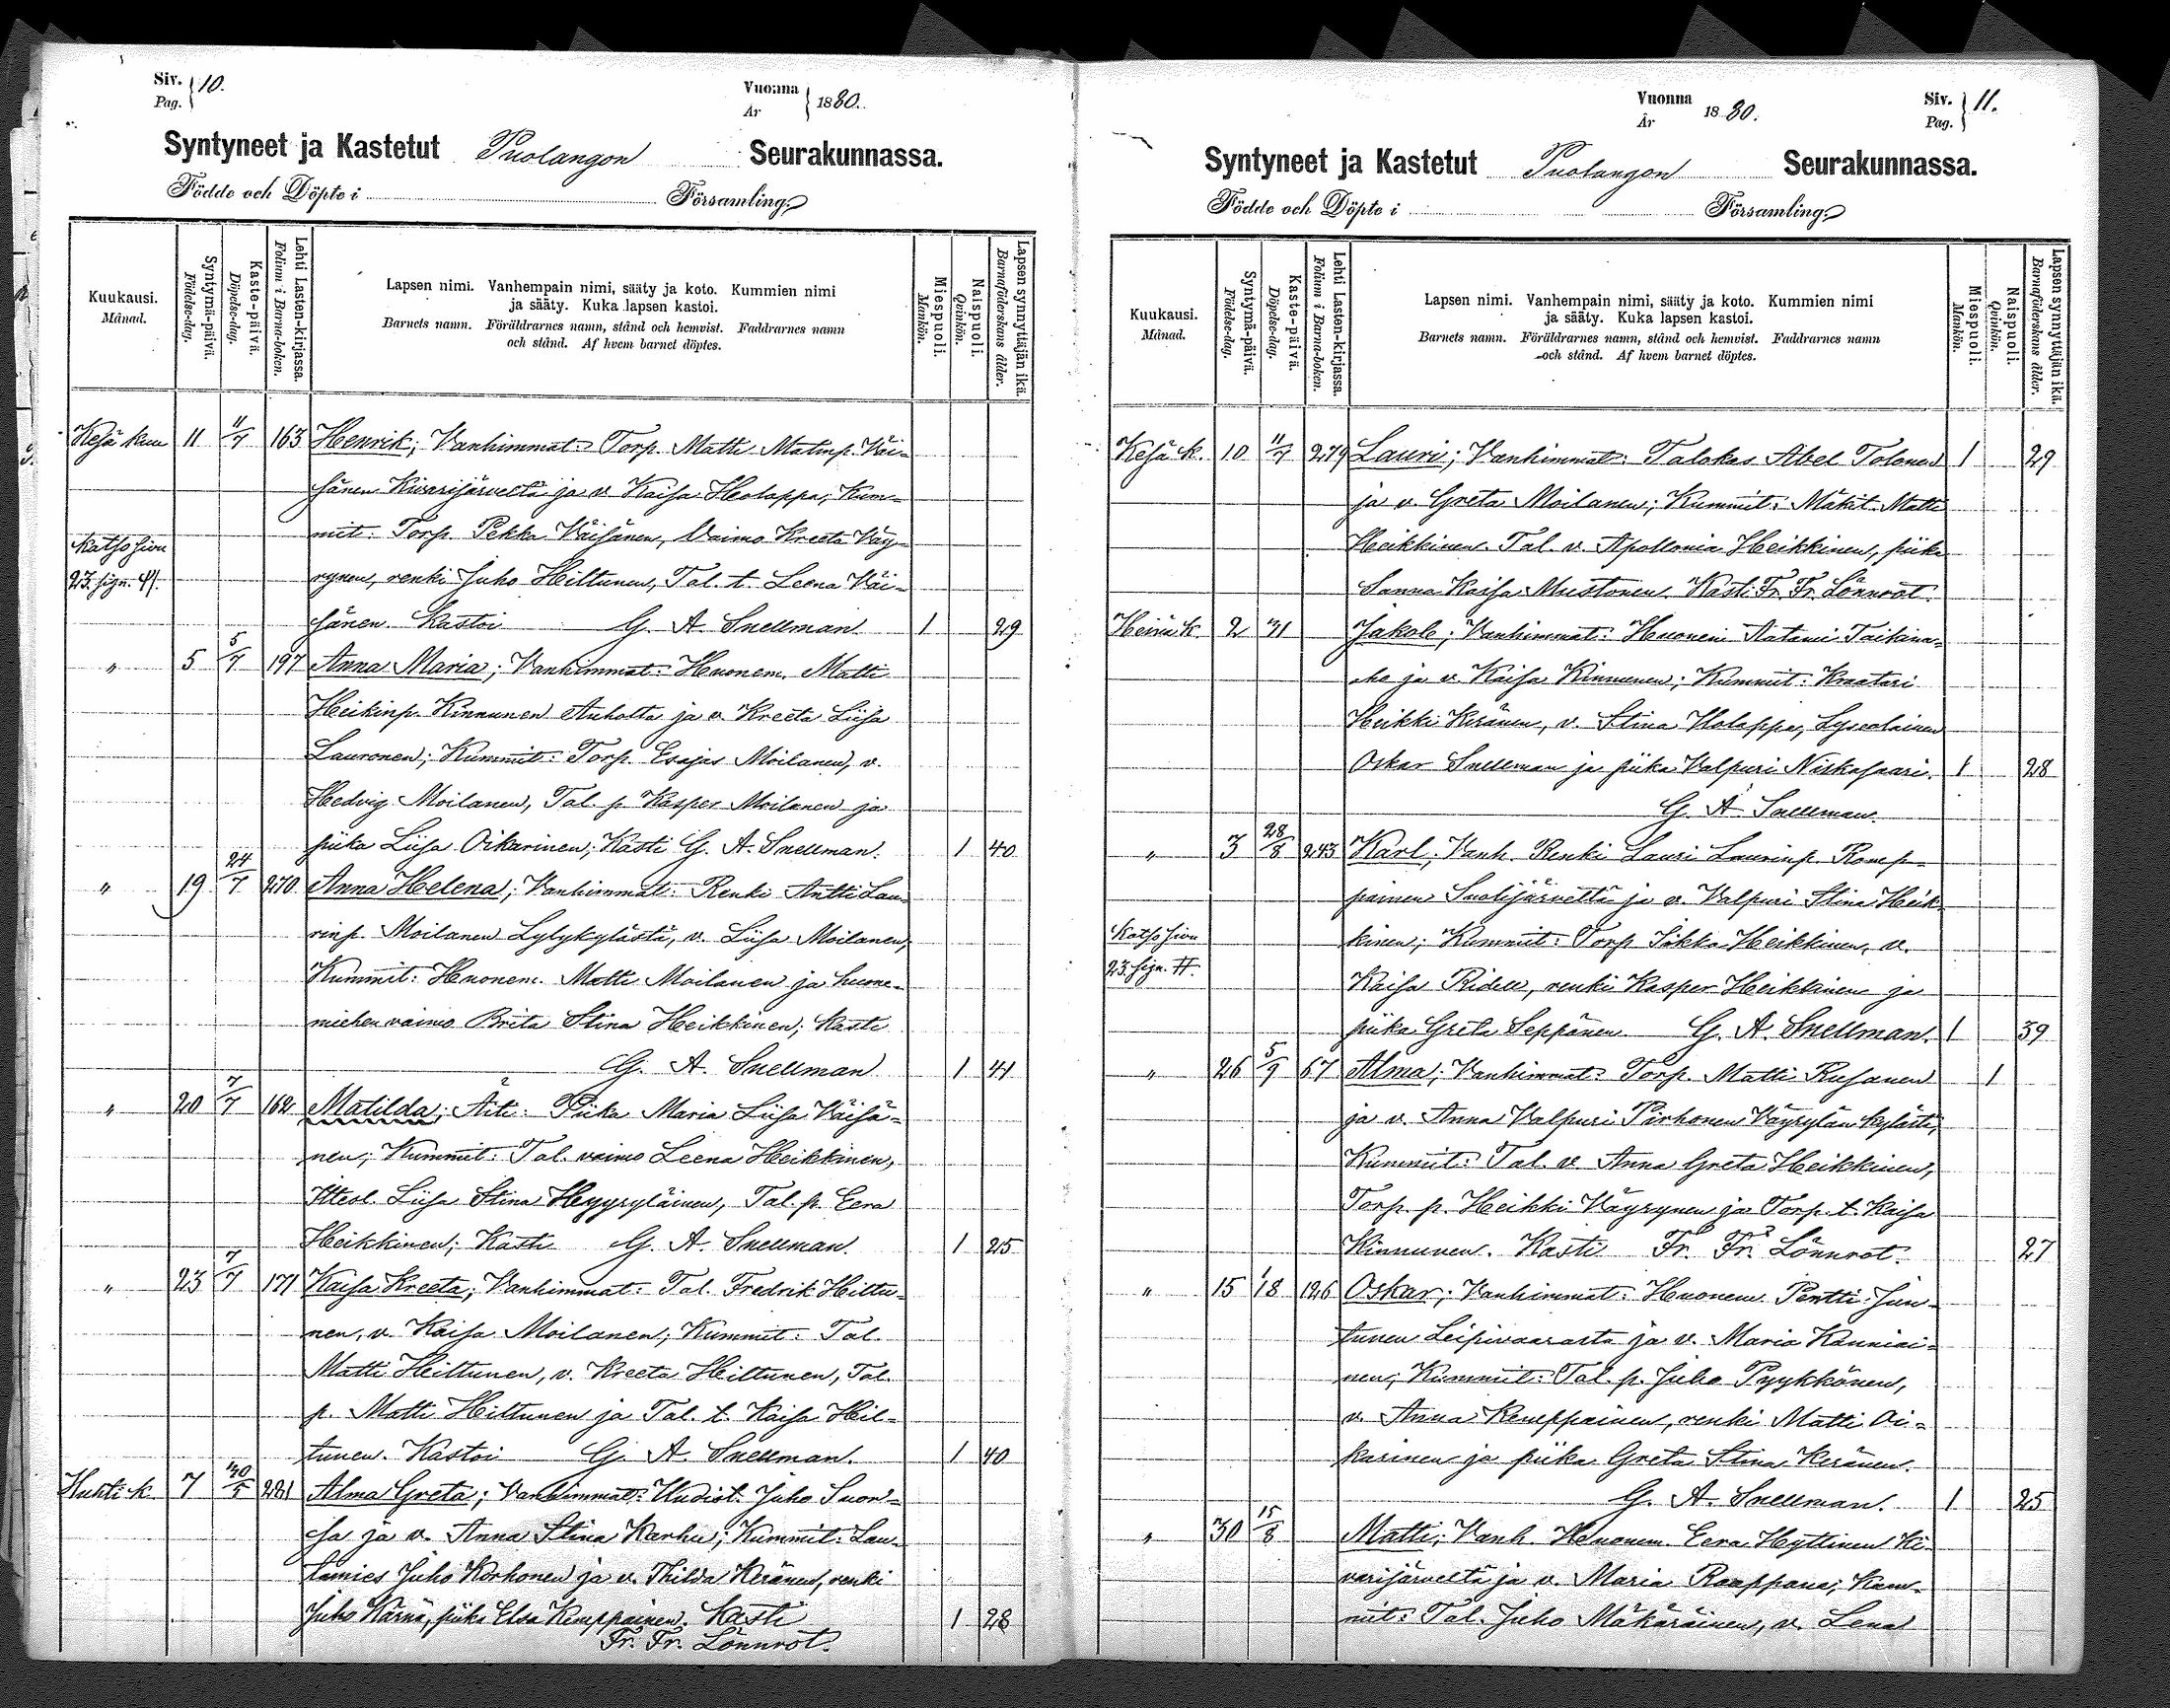 Siv. 10.
Pag.
Vuonna 1880.
År
Syntyneet ja Kastetut Puolangon Seurakunnassa.
Födde och Döpte i Församling.
Kuukausi. Månad.
Syntymä-päivä. Födelse-dag.
Kaste-päivä. Döpelse-dag.
Lehti Lasten-kirjassa. Folium i Barna-boken.
Lapsen nimi. Vanhempain nimi, sääty ja koto. Kummien nimi
ja sääty. Kuka lapsen kastoi.
Barnets namn. Föräldrarnes namn, stånd och hemvist. Faddrarnes namn
och stånd. Af hvem barnet döptes.
Miespuoli. Mankön.
Naispuoli. Qvinkön.
Lapsen synnyttäjän ikä. Barnaföderskans ålder.
Kesä kuu 11 11/7 163 Henrik; Vanhimmat: Torp. Matti Matinp. Väi-
sänen Kivarijärveltä ja v. Kaisa Holappa; Kum-
mit: Torp. Pekka Väisänen, Vaimo Kreeta Väy-
Katso sivu
23. sign. φ.
rynen, renki Juho Hiltunen, Tal. t. Leena Väi-
sänen. Kastoi G. A. Snellman. 1 29
" 5 5/7 197 Anna Maria; Vanhimmat: Huonem. Matti
Heikinp. Kinnunen Auholta ja v. Kreeta Liisa
Lauronen; Kummit: Torp. Esajas Moilanen, v.
Hedvig Moilanen, Tal. p. Kasper Moilanen ja
piika Liisa Oikarinen; Kasti G. A. Snellman. 1 40
" 19 24/7 270 Anna Helena; Vanhimmat: Renki Antti Lau-
rinp. Moilanen Lylykylästä, v. Liisa Moilanen,
Kummit: Huonem. Matti Moilanen ja huone-
miehen vaimo Brita Stina Heikkinen; Kasti
G. A. Snellman 1 41
" 20 7/7 162 Matilda; Äiti: Piika Maria Liisa Väisä-
nen; Kummit: Tal. vaimo Leena Heikkinen,
Ittesl. Liisa Stina Heyryläinen, Tal. p. Eera
Heikkinen; Kasti G. A. Snellman. 1 25
" 23 7/7 171 Kaisa Kreeta; Vanhimmat: Tal. Fredrik Hiltu-
nen, v. Kaisa Moilanen; Kummit: Tal.
Matti Hiltunen, v. Kreeta Hiltunen, Tal.
p. Matti Hiltunen ja Tal. t. Kaisa Hil-
tunen. Kastoi G. A. Snellman. 1 40
Huhti k. 7 281 Alma Greta; Vanhimmat: Uudist. Juho Suor-
sa ja v. Anna Stina Karhu; Kummit: Lau-
tamies Juho Korhonen ja v. Thilda Keränen, renki
Juho Kärnä, piika Elsa Kemppainen. Kasti 1 28
Fr. Fr. Lönnrot.
Vuonna 1880.
År
Siv. 11.
Pag.
Syntyneet ja Kastetut Puolangon Seurakunnassa.
Födde och Döpte i Församling.
Kuukausi. Månad.
Syntymä-päivä. Födelse-dag.
Kaste-päivä. Döpelse-dag.
Lehti Lasten-kirjassa. Folium i Barna-boken.
Lapsen nimi. Vanhempain nimi, sääty ja koto. Kummien nimi
ja sääty. Kuka lapsen kastoi.
Barnets namn. Föräldrarnes namn, stånd och hemvist. Faddrarnes namn
och stånd. Af hvem barnet döptes.
Miespuoli. Mankön.
Naispuoli. Qvinkön.
Lapsen synnyttäjän ikä. Barnaföderskans ålder.
Kesä k. 10 11/7 279 Lauri; Vanhimmat: Talokas Abel Tolonen 1 29
ja v. Greta Moilanen; Kummit: Mäkit. Matti
Heikkinen. Tal. v. Apollonia Heikkinen, piika
Sanna Kaisa Mustonen. Kasti Fr. Fr. Lönnrot.
Heinä k. 2 Jakob; Vanhimmat: Huonem. Aatami Taikina-
aho ja v. Kaisa Kinnunen; Kummit: Kraatari
Heikki Keränen, v. Stina Holappa, Lyseolainen
Oskar Snellman ja piika Valpuri Niskasaari. 1 28
G. A. Snellman.
" 3 28/8 243 Karl; Vanh. Renki Lauri Laurinp. Romp-
painen Suolijärveltä ja v. Valpuri Stina Heik-
Katso sivu
23. sign. #.
kinen; Kummit: Torp. Heikkinen, v.
Kaisa Ridell, renki Kasper Heikkinen ja
piika Greta Seppänen G. A. Snellman. 1 39
" 26 5/9 67 Alma; Vanhimmat: Torp. Matti Rusanen 1
ja v. Anna Valpuri Pirhonen Väyrylän kylästä;
Kummit: Tal. v. Anna Greta Heikkinen,
Torp. p. Heikki Väyrynen ja Torp. t. Kaisa
Kinnunen. Kasti Fr. Fr. Lönnrot. 27
" 15 1/8 126 Oskar; Vanhimmat: Huonem. Pentti Jun-
tunen Leipivaarasta ja v. Maria Kanniai-
nen; Kummit: Tal. p. Juho Pyykkönen,
v. Anna Kemppainen, renki Matti Oi-
karinen ja piika Greta Stina Keränen.
G. A. Snellman. 1 25
" 30 15/8 Matti; Vanh. Huonem. Eera Hyttinen Ki-
varijärveltä ja v. Maria Raappana; Kum-
mit: Tal. Juho Mäkäräinen, v. Lena